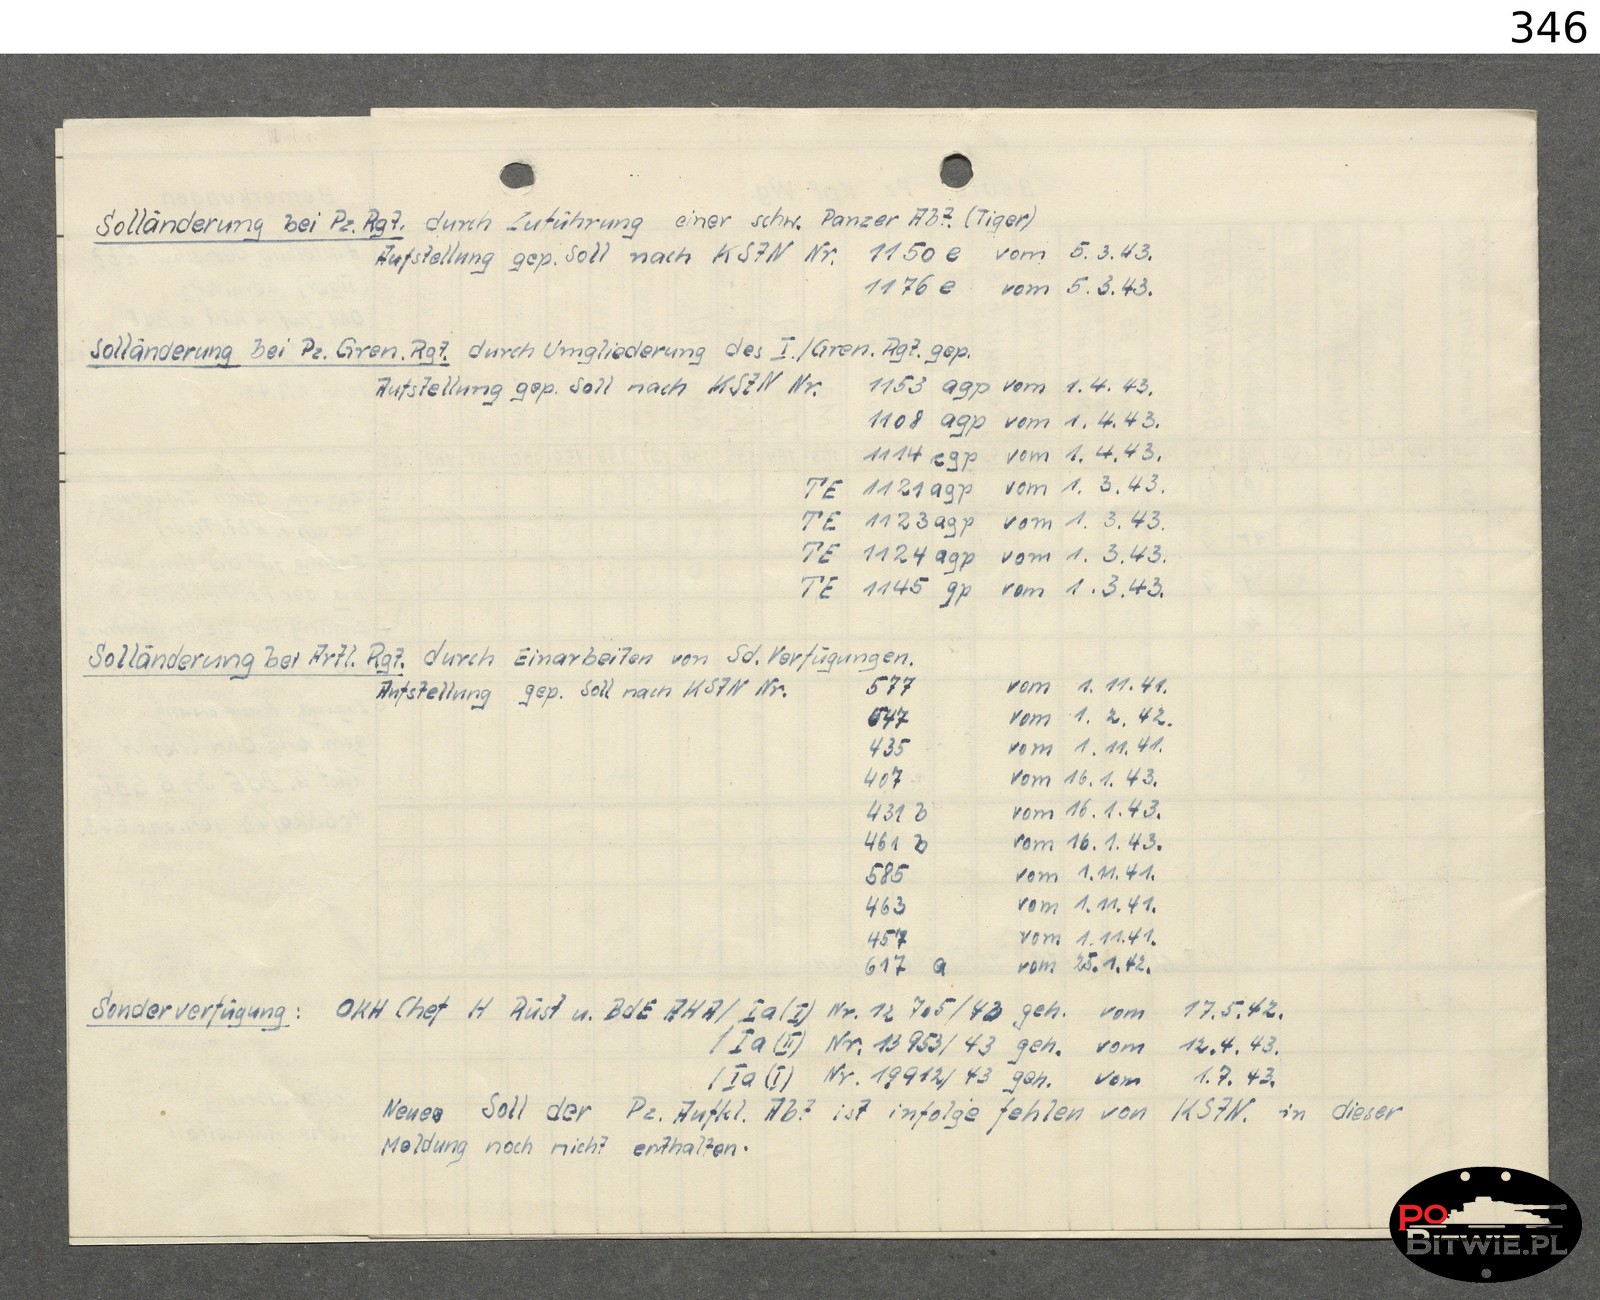 346
Solländerung bei Pz. Rgt. durch Zuführung einer schw. Panzer Abt. (Tiger)
Aufstellung gep. Soll nach KStN Nr. 1150 e vom 5.3.43.
1176 e vom 5.3.43.
Solländerung bei Pz. Gren. Rgt. durch Umgliederung des I./Gren. Rgt. gep.
Aufstellung gep. Soll nach KStN Nr. 1153 agp vom 1.4.43.
1108 agp vom 1.4.43.
1114 cgp vom 1.4.43.
TE 1121 agp vom 1.3.43.
TE 1123 agp vom 1.3.43.
TE 1124 agp vom 1.3.43.
TE 1145 gp vom 1.3.43.
Solländerung bei Artl. Rgt. durch Einarbeiten von Sd. Verfügungen.
Aufstellung gep. Soll nach KStN Nr. 577 vom 1.11.41.
547 vom 1.2.42.
435 vom 1.11.41.
407 vom 16.1.43.
431 b vom 16.1.43.
461 b vom 16.1.43.
585 vom 1.11.41.
463 vom 1.11.41.
457 vom 1.11.41.
617 a vom 25.1.42.
Sonderverfügung: OKH Chef H Rüst u. BdE AHA/ Ia (I) Nr. 12 705/43 geh. vom 17.5.42.
/ Ia (II) Nr. 13953/43 geh. vom 12.4.43.
/ Ia (I) Nr. 19912/43 geh. vom 1.7.43.
Neues Soll der Pz. Aufkl. Abt ist infolge fehlen von KStN. in dieser
Meldung noch nicht enthalten.
PO
BITWIE.PL